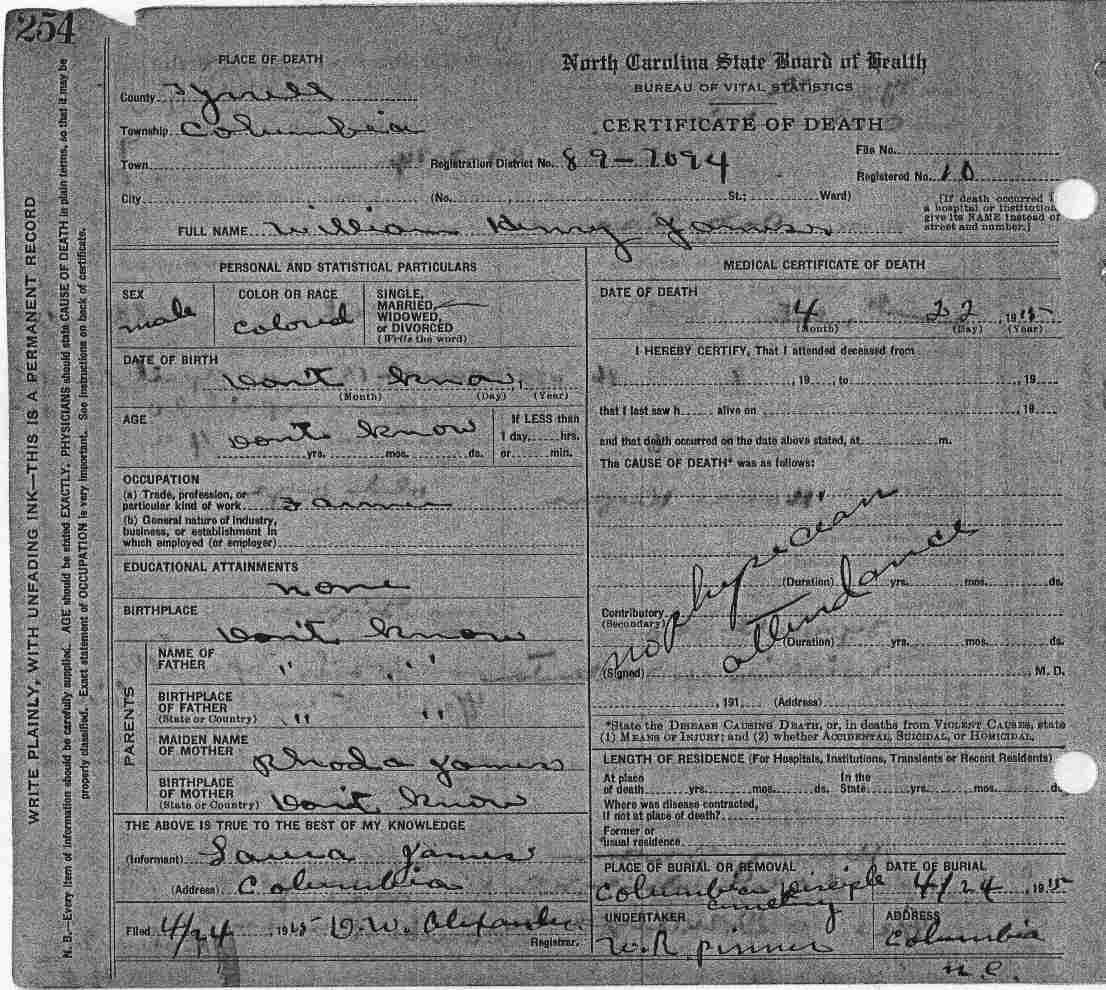 254
WRITE PLAINLY, WITH UNFADING INK—THIS IS A PERMANENT RECORD
N. B.—Every item of information should be carefully supplied. AGE should be stated EXACTLY. PHYSICIANS should state CAUSE OF DEATH in plain terms, so that it may be
properly classified. Exact statement of OCCUPATION is very important. See instructions on back of certificate.
PLACE OF DEATH
County Tyrrell
Township Columbia
Town
City
North Carolina State Board of Health
BUREAU OF VITAL STATISTICS
CERTIFICATE OF DEATH
Registration District No. 89-7094
File No.
Registered No. 10
(No. St.; Ward)
[If death occurred
a hospital or institution
give its NAME instead of
street and number.]
FULL NAME William Henry James
PERSONAL AND STATISTICAL PARTICULARS
SEX
male
COLOR OR RACE
Colored
SINGLE,
MARRIED,
WIDOWED,
or DIVORCED
(Write the word)
DATE OF BIRTH
Don't know
(Month) (Day) (Year)
AGE
Don't know
yrs. mos. ds.
If LESS than
1 day, hrs.
or min.
OCCUPATION
(a) Trade, profession, or
particular kind of work Farmer
(b) General nature of industry,
business, or establishment in
which employed (or employer)
EDUCATIONAL ATTAINMENTS
none
BIRTHPLACE
Don't know
PARENTS
NAME OF
FATHER " "
BIRTHPLACE
OF FATHER
(State or Country) " "
MAIDEN NAME
OF MOTHER Rhoda James
BIRTHPLACE
OF MOTHER
(State or Country) Don't know
THE ABOVE IS TRUE TO THE BEST OF MY KNOWLEDGE
(Informant) Laura James
(Address) Columbia
Filed 4/24, 1915 D.W. Alexander
Registrar.
MEDICAL CERTIFICATE OF DEATH
DATE OF DEATH
4 22 1915
(Month) (Day) (Year)
I HEREBY CERTIFY, That I attended deceased from
, 19 , to , 19
that I last saw h alive on , 19
and that death occurred on the date above stated, at m.
The CAUSE OF DEATH* was as follows:
no physician
attendance
(Duration) yrs. mos. ds.
Contributory
(Secondary)
(Duration) yrs. mos. ds.
(Signed) , M. D.
, 191 (Address)
*State the DISEASE CAUSING DEATH, or, in deaths from VIOLENT CAUSES, state
(1) MEANS OF INJURY; and (2) whether ACCIDENTAL, SUICIDAL, or HOMICIDAL.
LENGTH OF RESIDENCE (For Hospitals, Institutions, Transients or Recent Residents)
At place
of death yrs. mos. ds.
In the
State yrs. mos.
Where was disease contracted,
If not at place of death?
Former or
usual residence
PLACE OF BURIAL OR REMOVAL
Columbia Disciple
cemetery
DATE OF BURIAL
4/24, 1915
UNDERTAKER
W.R pinner
ADDRESS
Columbia
n.c.